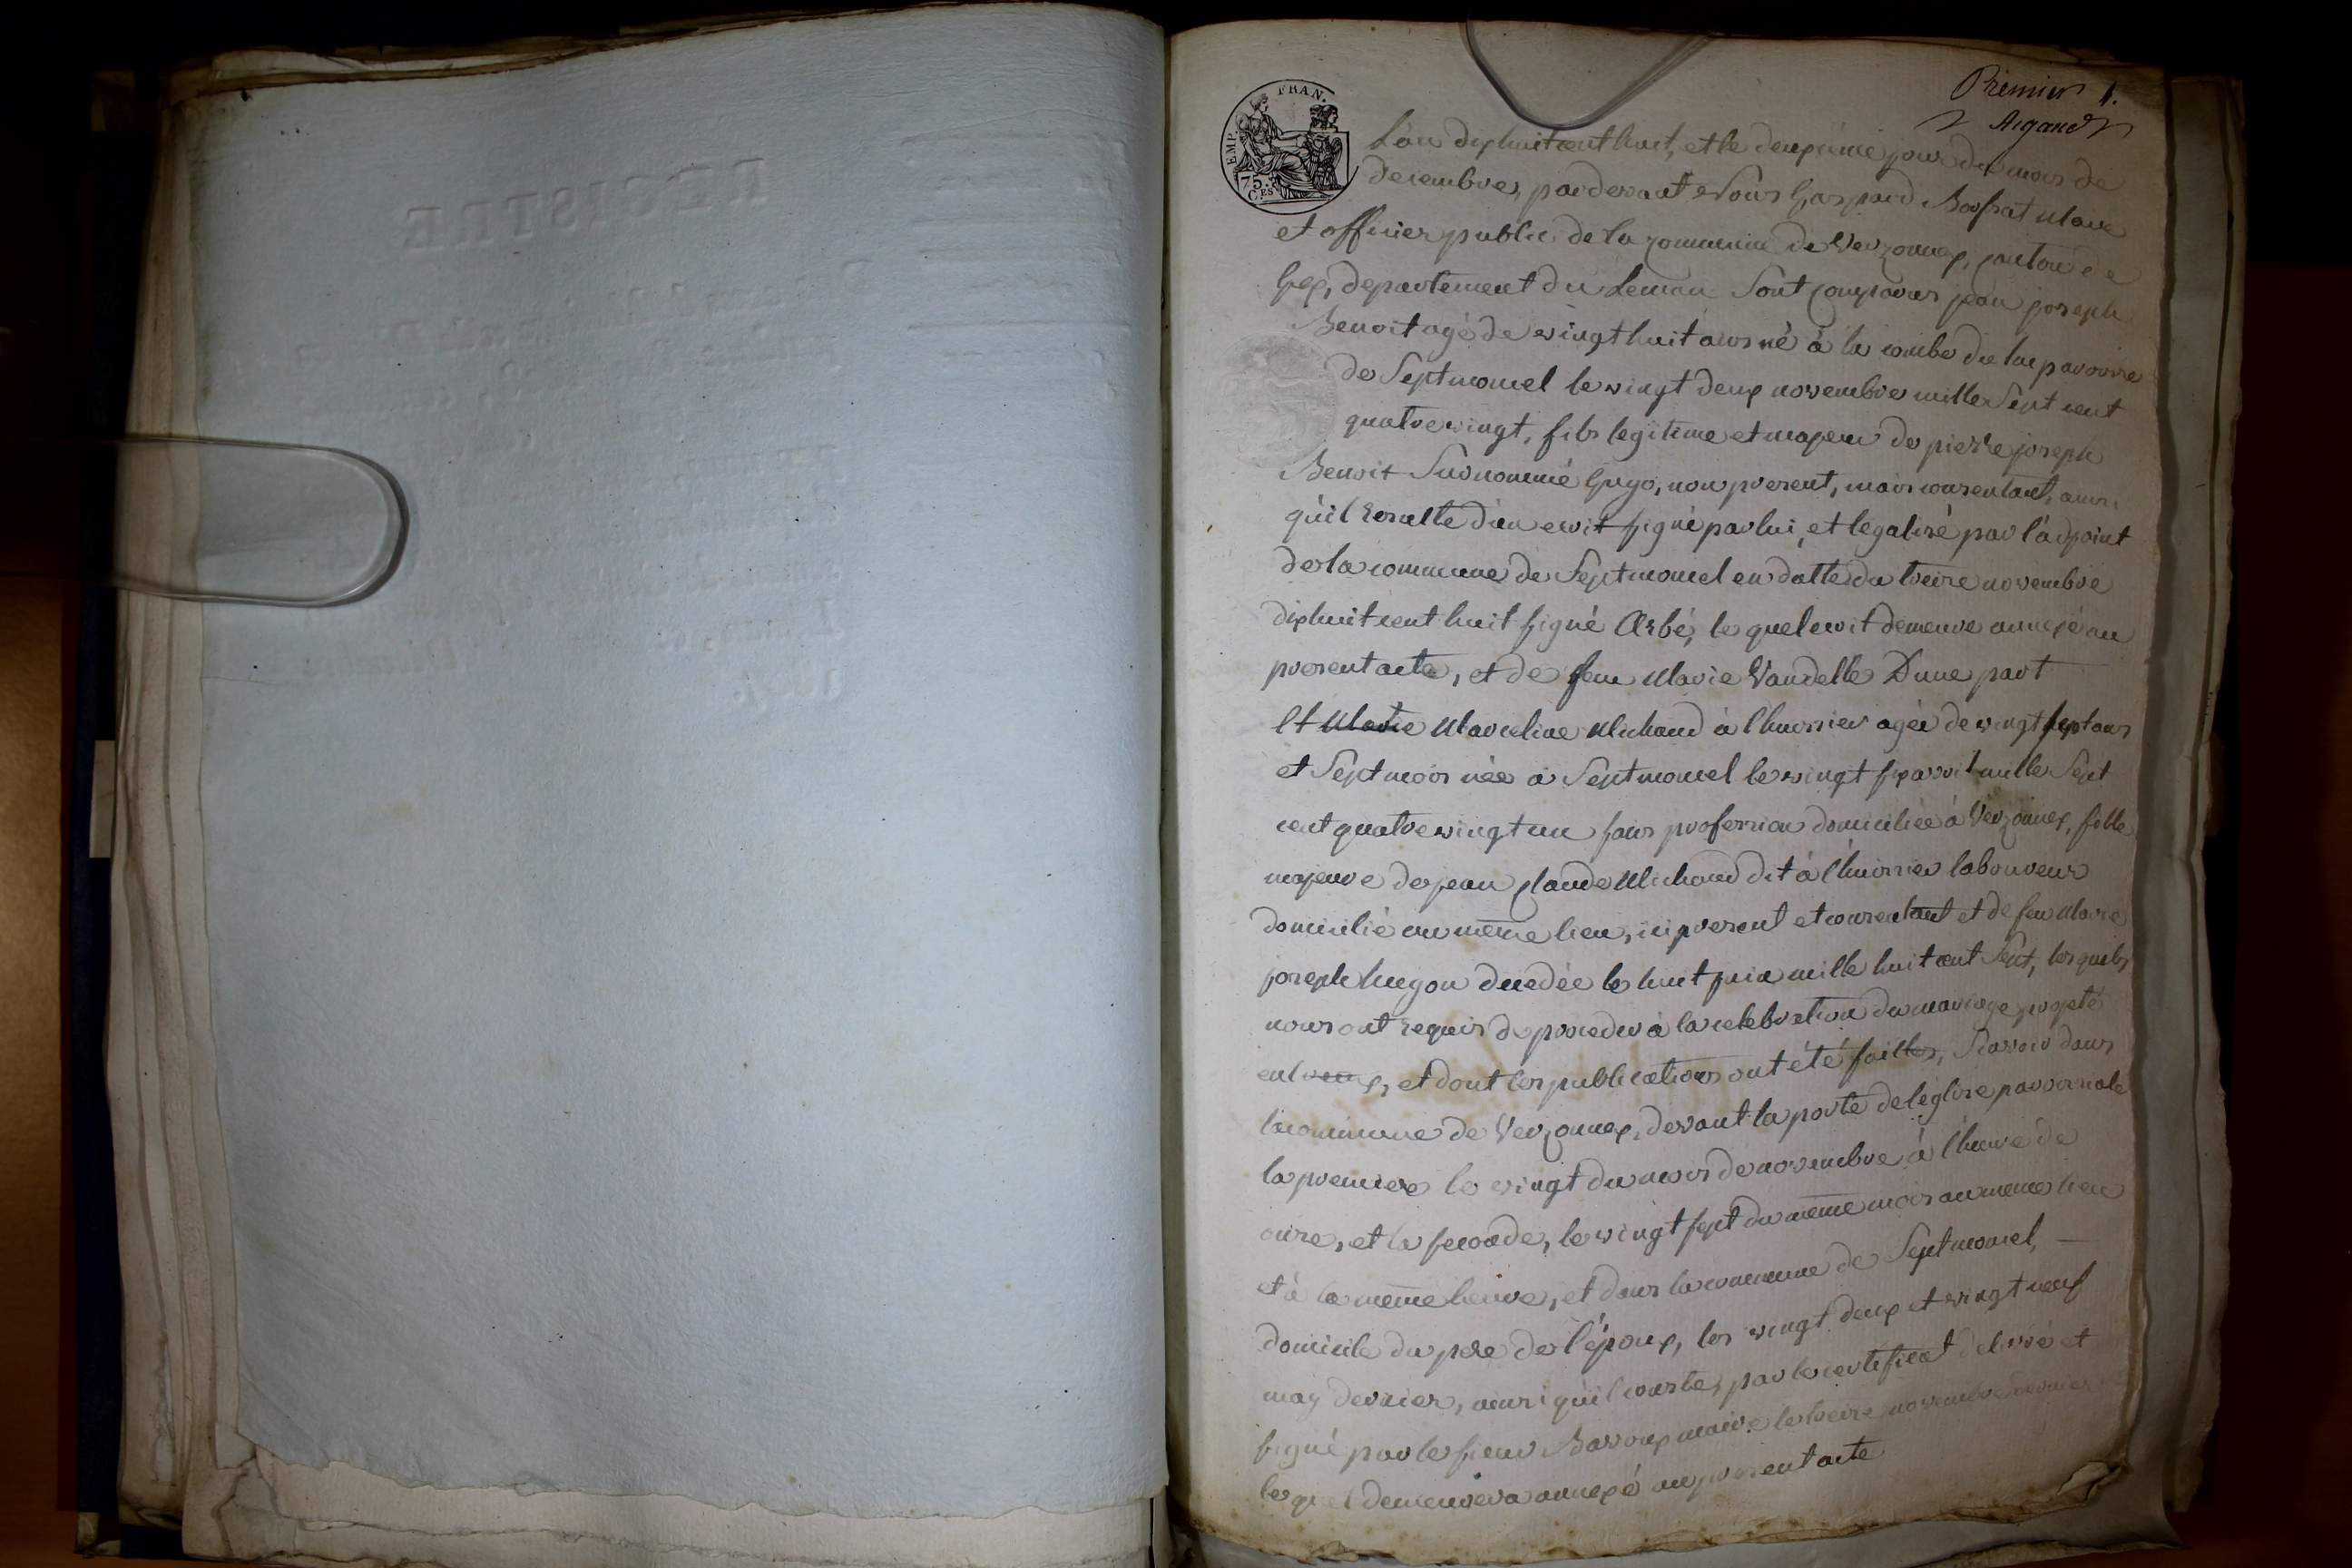 REGISTRE
Premier 1.
Argand
EMP. FRAN.
75. C.ES
L'an dixhuitcent huit, et le deuxieme jour du mois de
Decembre, pardevant Nous Gaspard Maire
et officier public de la commune de Verzonnex, canton de
Gex, departement du Leman Sont comparus jean joseph
Benoit agé de vingt huit ans né à la combe du lac paroisse
de Septmoncel le vingt deux novembre mille Sept cent
quatrevingt, fils legitime et majeur de pierre joseph
Benoit Surnommé Gugo, non present, mais consentant, ainsi
qu'il resulte d'un ecrit signé par lui, et legalisé par l'adjoint
de la commune de Septmoncel en datte du treize novembre
dixhuit cent huit signé le quel ecrit demeure annexé au
present acte, et de feue Marie Vandelle D'une part
Et Marie Marceline Michaud à l'huissier agée de vingt sept ans
et Sept mois née à Septmoncel le vingt six avril mille Sept
cent quatrevingt un sans profession domiciliée à Verzonnex, fille
majeure de jean claude Michaud dit à l'huissier laboureur
domicilié au même lieu, ici present et consentant et de feu Marie
joseph hugon decedée le huit juin mille huit cent Sept, lesquels
nous ont requis de proceder à la celebration du mariage projeté
entre eux, et dont les publications ont été faittes, Scavoir dans
la commune de Verzonnex, devant la porte de l'eglise paroissiale
la premiere le vingt du mois de novembre à l'heure de
onze, et la seconde, le vingt sept du même mois au meme lieu
et à la même heure, et dans la commune de Septmoncel,
domicile du pere de l'époux, les vingt deux et vingt neuf
may dernier, ainsi qu'il conste, par le certificat delivré et
signé par le sieur maire le treize novembre dernier
lequel demeurera annexé au present acte